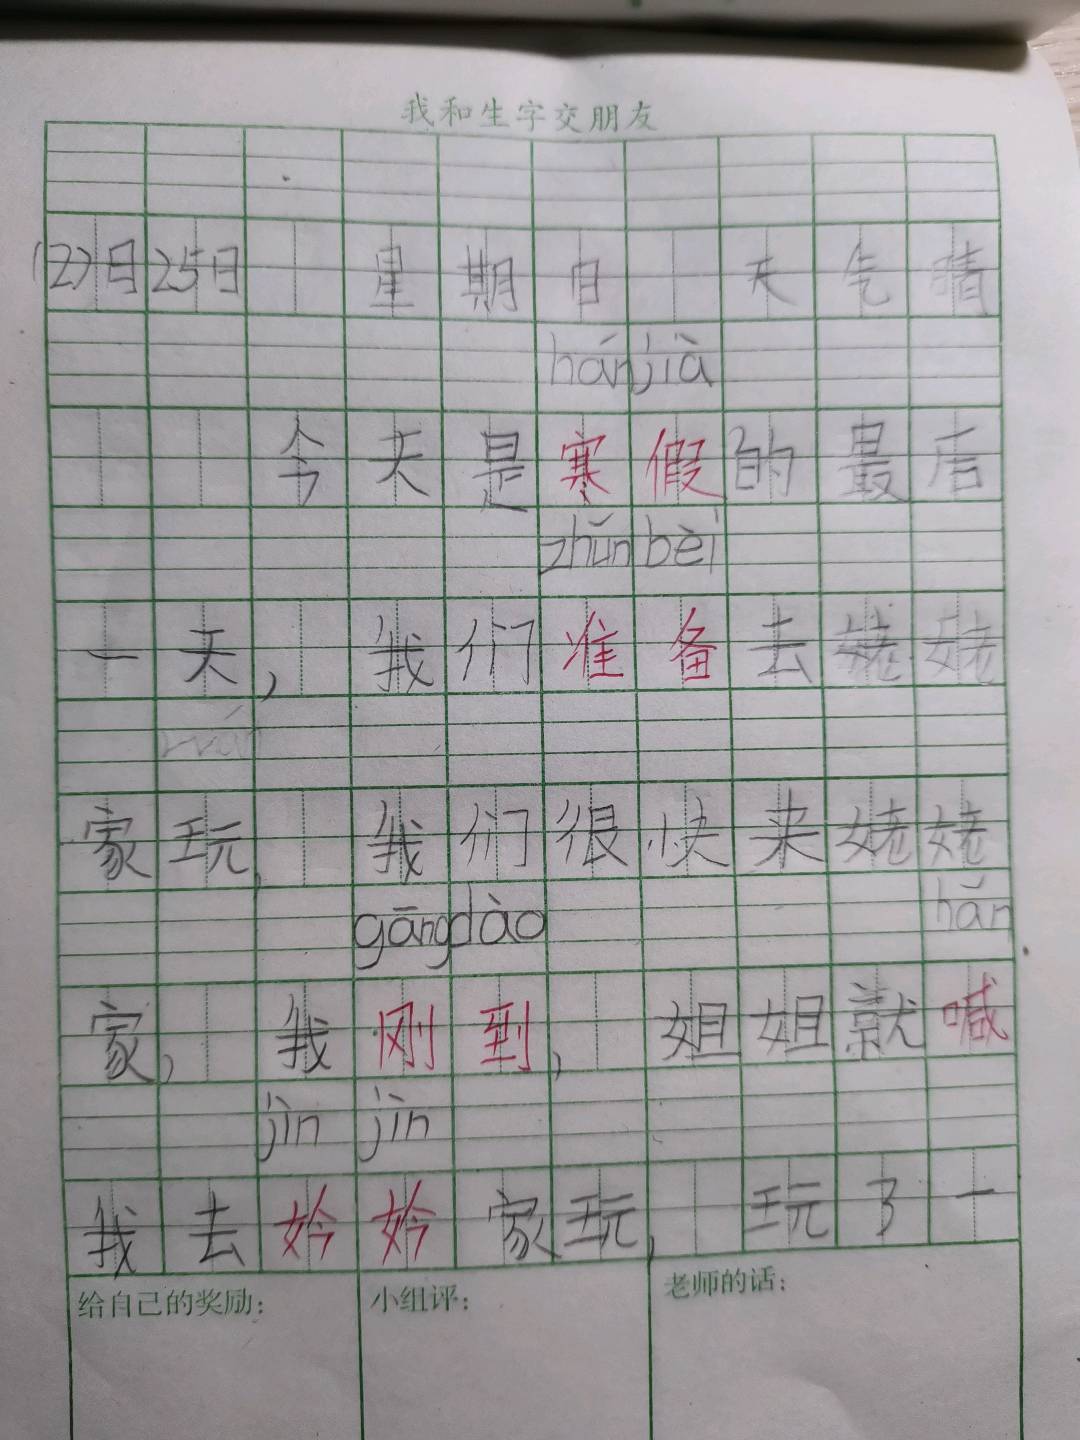 我和生字交朋友
(2)日25日 星期日 天气晴
hánjià
今天是寒假的最后
zhǔnbèi
一天，我们准备去姥姥
wán
家玩，我们很快来姥姥
gāngdào hǎn
家，我刚到，姐姐就喊
jìn jìn
我去妗妗家玩，玩了一
给自己的奖励： 小组评： 老师的话：